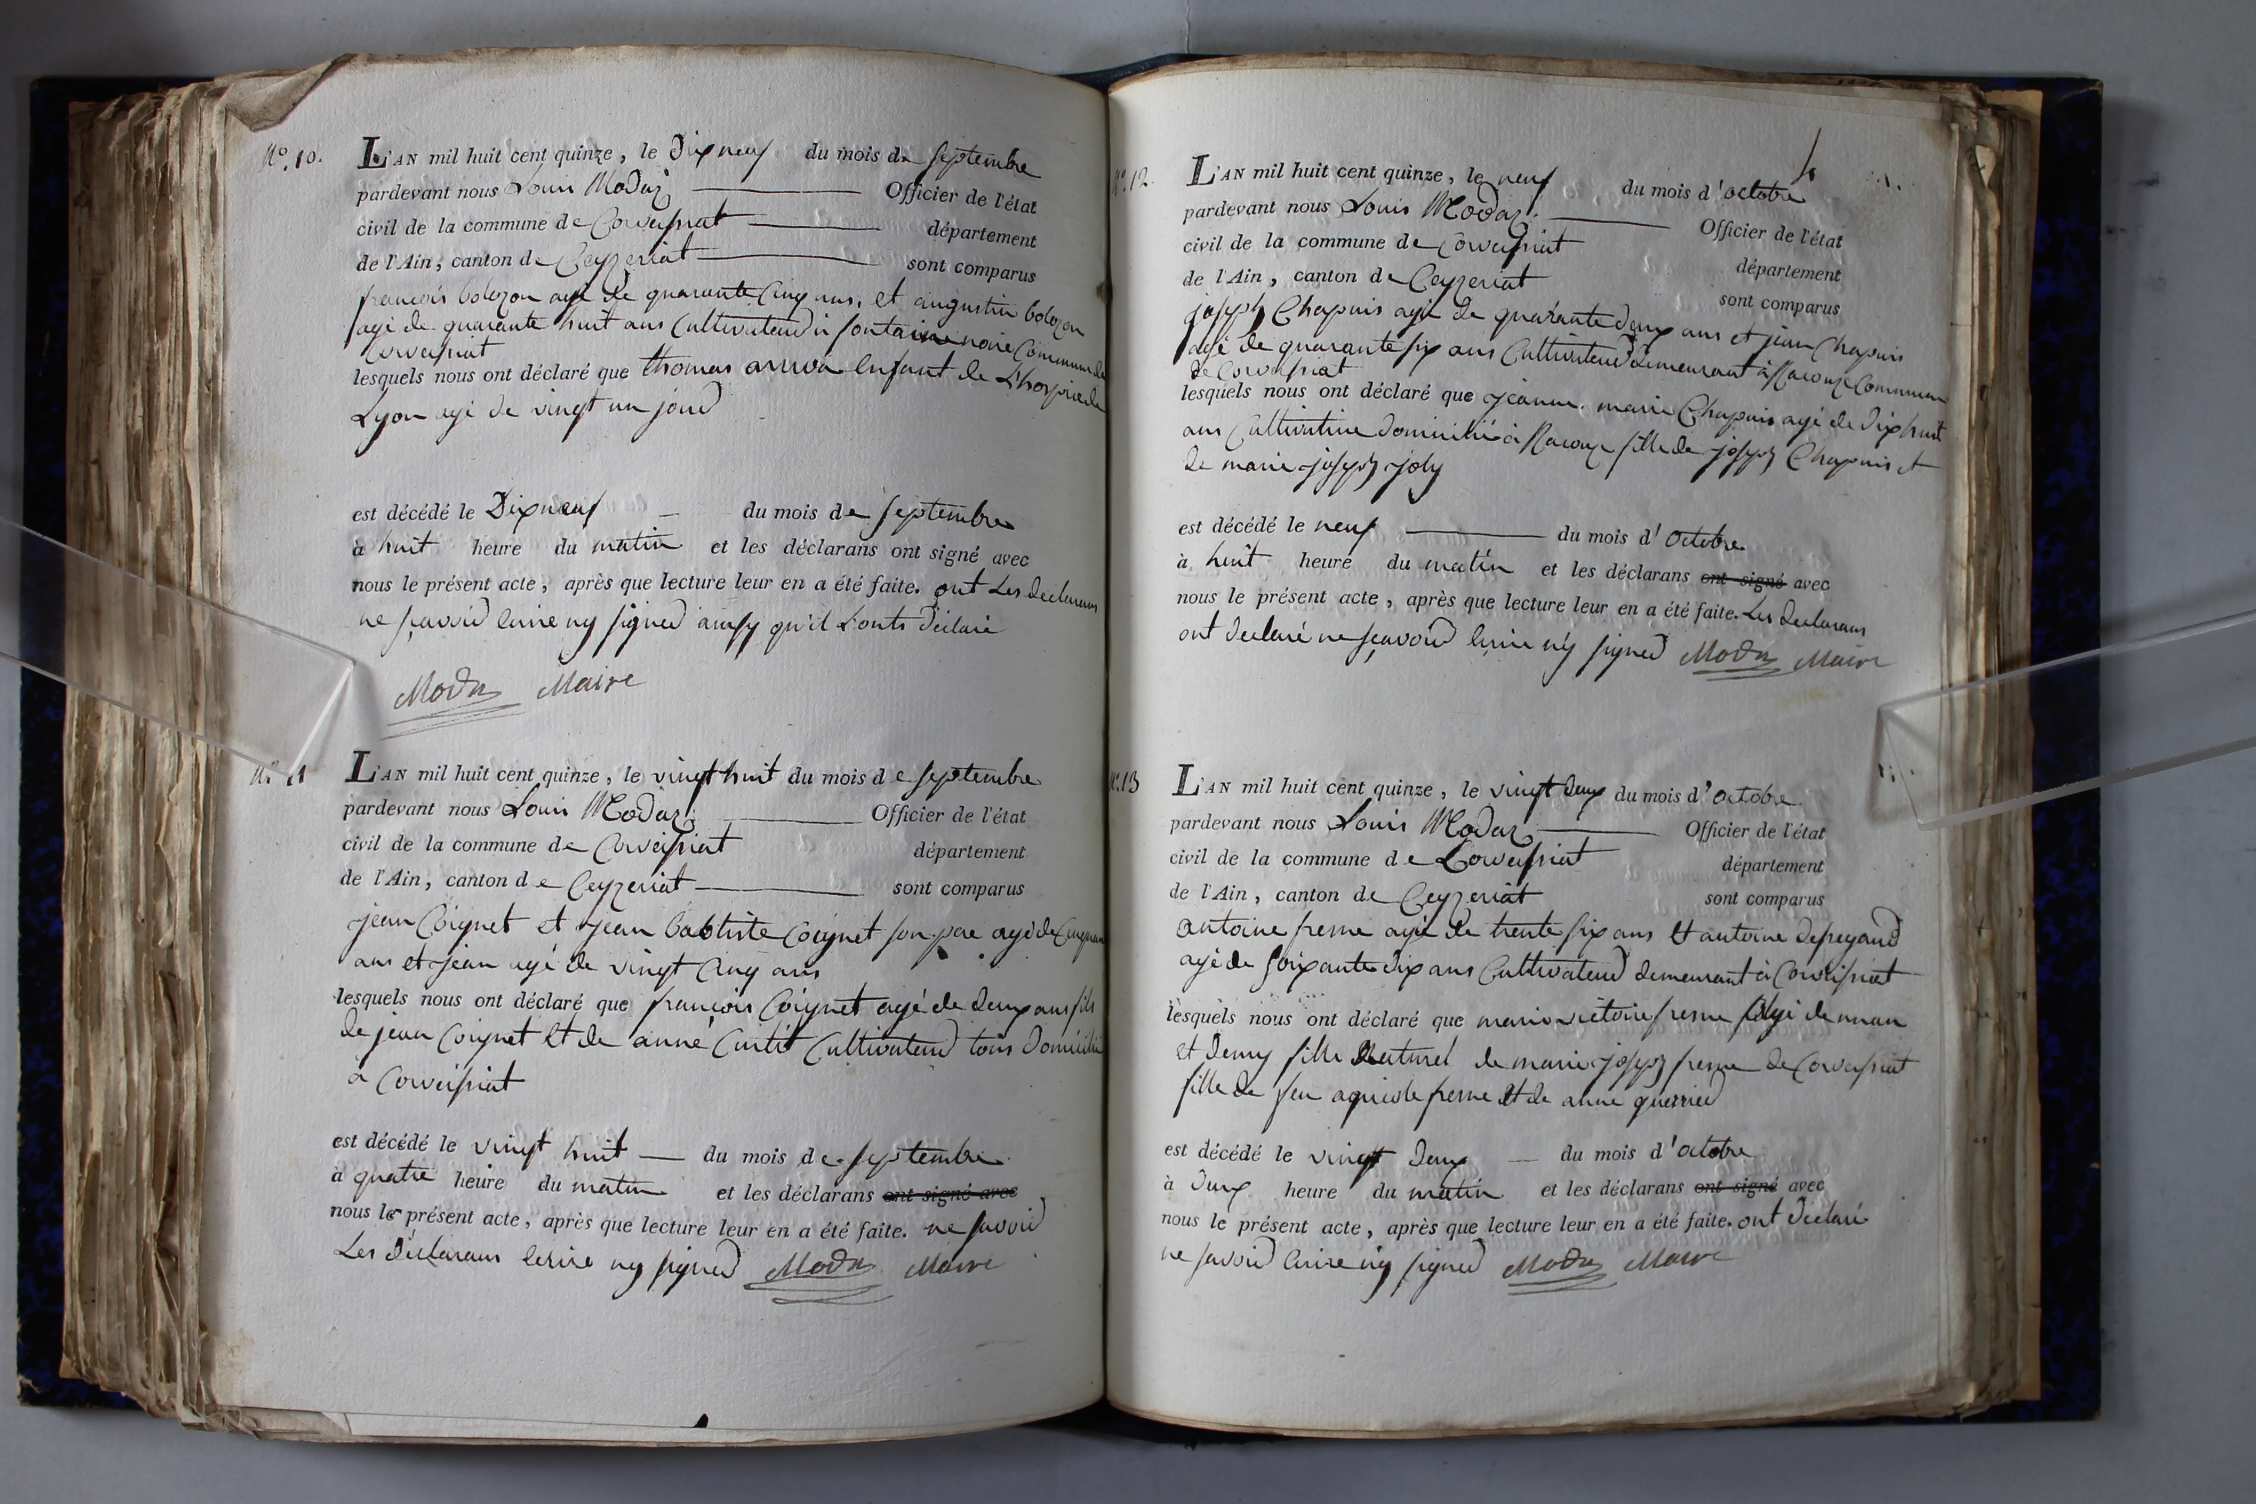 N.º 10.
L'AN mil huit cent quinze, le dix neuf du mois de septembre
pardevant nous Louis Modaz Officier de l'état
civil de la commune de Corveissiat département
de l'Ain, canton de Ceyzeriat sont comparus
francois bolozon agé de quarante cinq ans, et augustin bolozon
agé de quarante huit ans Cultivateur à fontaine noire Commune de
Corveissiat
lesquels nous ont déclaré que thomas enfant de L'hospice de
Lyon agé de vingt un jour
est décédé le Dix neuf du mois de septembre
à huit heure du matin et les déclarans ont signé avec
nous le présent acte, après que lecture leur en a été faite. ont Les declarans
ne sçavoir ecrire ny signer ainsy qu'il L'onts déclaré
Modaz Maire
N.º 11
L'AN mil huit cent quinze, le vingt huit du mois de septembre
pardevant nous Louis Modaz Officier de l'état
civil de la commune de Corveissiat département
de l'Ain, canton de Ceyzeriat sont comparus
jean Coignet et jean baptiste Coignet son pere agé de
ans et jean agé de vingt cinq ans
lesquels nous ont déclaré que francois Coignet agé de deux ans fils
de jean Coignet et de anne Curtit Cultivateur tous Domicilié
a Corveissiat
est décédé le vingt huit du mois de septembre
à quatre heure du matin et les déclarans ont signé avec
nous le présent acte, après que lecture leur en a été faite. ne savoir
Les déclarans ecrire ny signer Modaz Maire
N.º 12
L'AN mil huit cent quinze, le neuf du mois d'octobre
pardevant nous Louis Modaz Officier de l'état
civil de la commune de Corveissiat département
de l'Ain, canton de Ceyzeriat sont comparus
joseph Chapuis agé de quarante deux ans et jean Chapuis
agé de quarante six ans Cultivateur demeurant à Racouze Commune
de Corveissiat
lesquels nous ont déclaré que jeanne marie Chapuis agé de dix huit
ans Cultivatrice domicilié à Racouze fille de joseph Chapuis et
de marie joseph joly
est décédé le neuf du mois d'octobre
à huit heure du matin et les déclarans ont signé avec
nous le présent acte, après que lecture leur en a été faite. Les declarans
ont declaré ne sçavoir ecrire ny signer Modaz Maire
N.º 13
L'AN mil huit cent quinze, le vingt deux du mois d'octobre
pardevant nous Louis Modaz Officier de l'état
civil de la commune de Corveissiat département
de l'Ain, canton de Ceyzeriat sont comparus
antoine perne agé de trente six ans Et antoine
agé de soixante dix ans Cultivateur demeurant à Corveissiat
lesquels nous ont déclaré que marie victoire perne agé de un an
et demy fille Naturel de marie joseph perne de Corveissiat
fille de feu agricole perne et de anne guerrier
est décédé le vingt deux du mois d'octobre
à deux heure du matin et les déclarans ont signé avec
nous le présent acte, après que lecture leur en a été faite. ont déclaré
ne savoir ecrire ny signer Modaz Maire